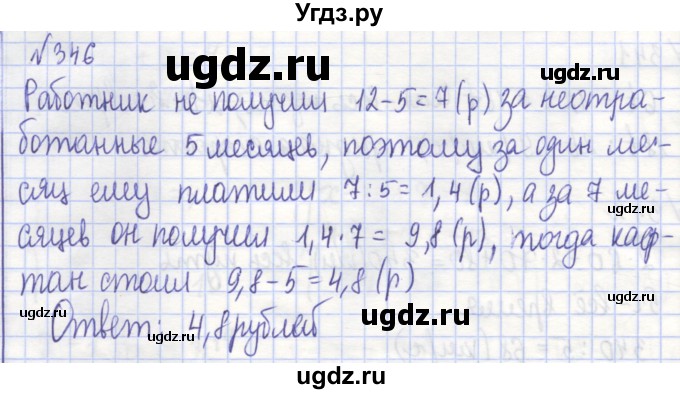 Угдз.ру
№346
ugdz.ru ugdz.ru
Работник не получил 12-5=7(р) за неотра-
ботанные 5 месяцев, поэтому за один ме-
ugdz.ru ugdz.ru
сяц ему платили 7:5=1,4(р), а за 7 ме-
сяцев он получил 1,4·7= 9,8(р), тогда каф-
ugdz.ru
тан стоил 9,8-5=4,8(р)
ugdz.ru ugdz.ru ugdz.ru
Ответ: 4,8 рублей
ugdz.ru
ugdz.ru